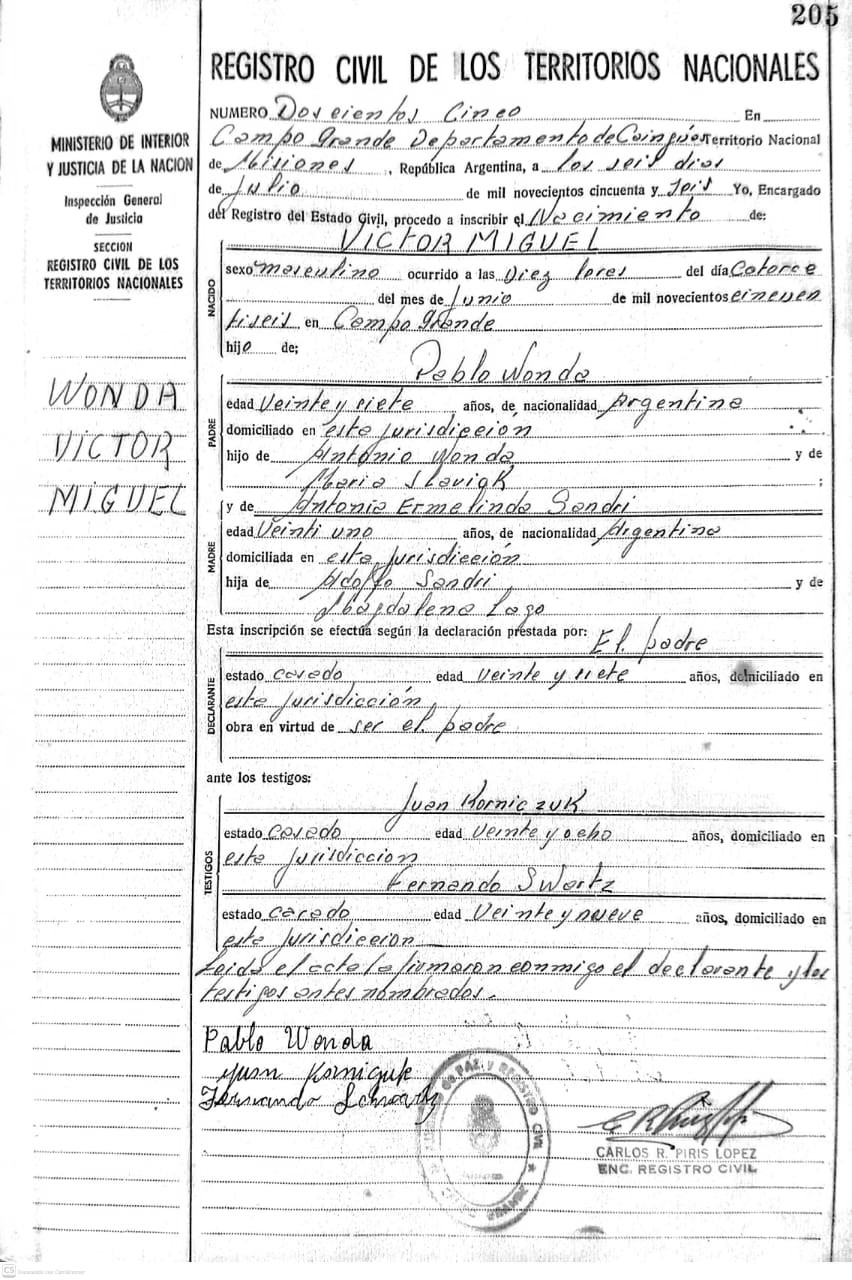 205
REGISTRO CIVIL DE LOS TERRITORIOS NACIONALES
MINISTERIO DE INTERIOR
Y JUSTICIA DE LA NACION
Inspección General
de Justicia
SECCION
REGISTRO CIVIL DE LOS
TERRITORIOS NACIONALES
WONDA
VICTOR
MIGUEL
NUMERO Doscientos Cinco En
Campo Grande Departamento de Caingúas Territorio Nacional
de Misiones, República Argentina, a los seis dias
de Julio de mil novecientos cincuenta y seis Yo, Encargado
del Registro del Estado Civil, procedo a inscribir el Nacimiento de:
VICTOR MIGUEL
NACIDO
sexo masculino ocurrido a las Diez horas del día Catorce
del mes de Junio de mil novecientos cincuen
tiseis en Campo Grande
hijo de;
Pablo Wonda
PADRE
edad Veinte y siete años, de nacionalidad Argentina
domiciliado en esta jurisdicción
hijo de Antonio Wonda y de
Maria Slaviak ;
y de Antonia Ermelinda Sandri
MADRE
edad Veinti uno años, de nacionalidad Argentina
domiciliada en esta jurisdicción
hija de Adolfo Sandri y de
Magdalena Lago
Esta inscripción se efectúa según la declaración prestada por: El padre
DECLARANTE
estado casado edad veinte y siete años, domiciliado en
esta jurisdicción,
obra en virtud de ser el padre
ante los testigos:
Juan Korniczuk
TESTIGOS
estado casado edad veinte y ocho años, domiciliado en
esta jurisdiccion
Fernando Swartz
estado casado edad Veinte y nueve años, domiciliado en
esta jurisdiccion
Leida el acta la firmaron conmigo el declarante y los
testigos antes nombrados.
Pablo Wonda
Juan
Fernando Schwartz
PAZ Y REGISTRO CIVIL
CARLOS R. PIRIS LOPEZ
ENC. REGISTRO CIVIL
CS